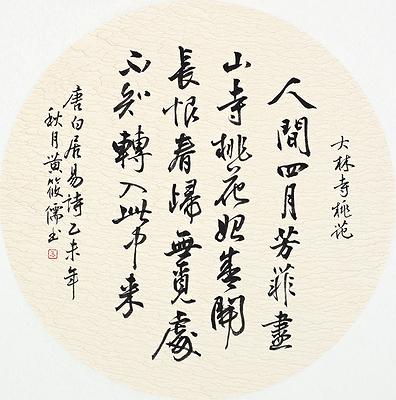 大林寺桃花
人間四月芳菲盡
山寺桃花始盛開
長恨春歸無覓處
不知轉入此中來
唐白居易詩乙未年
秋月黃筱儒書